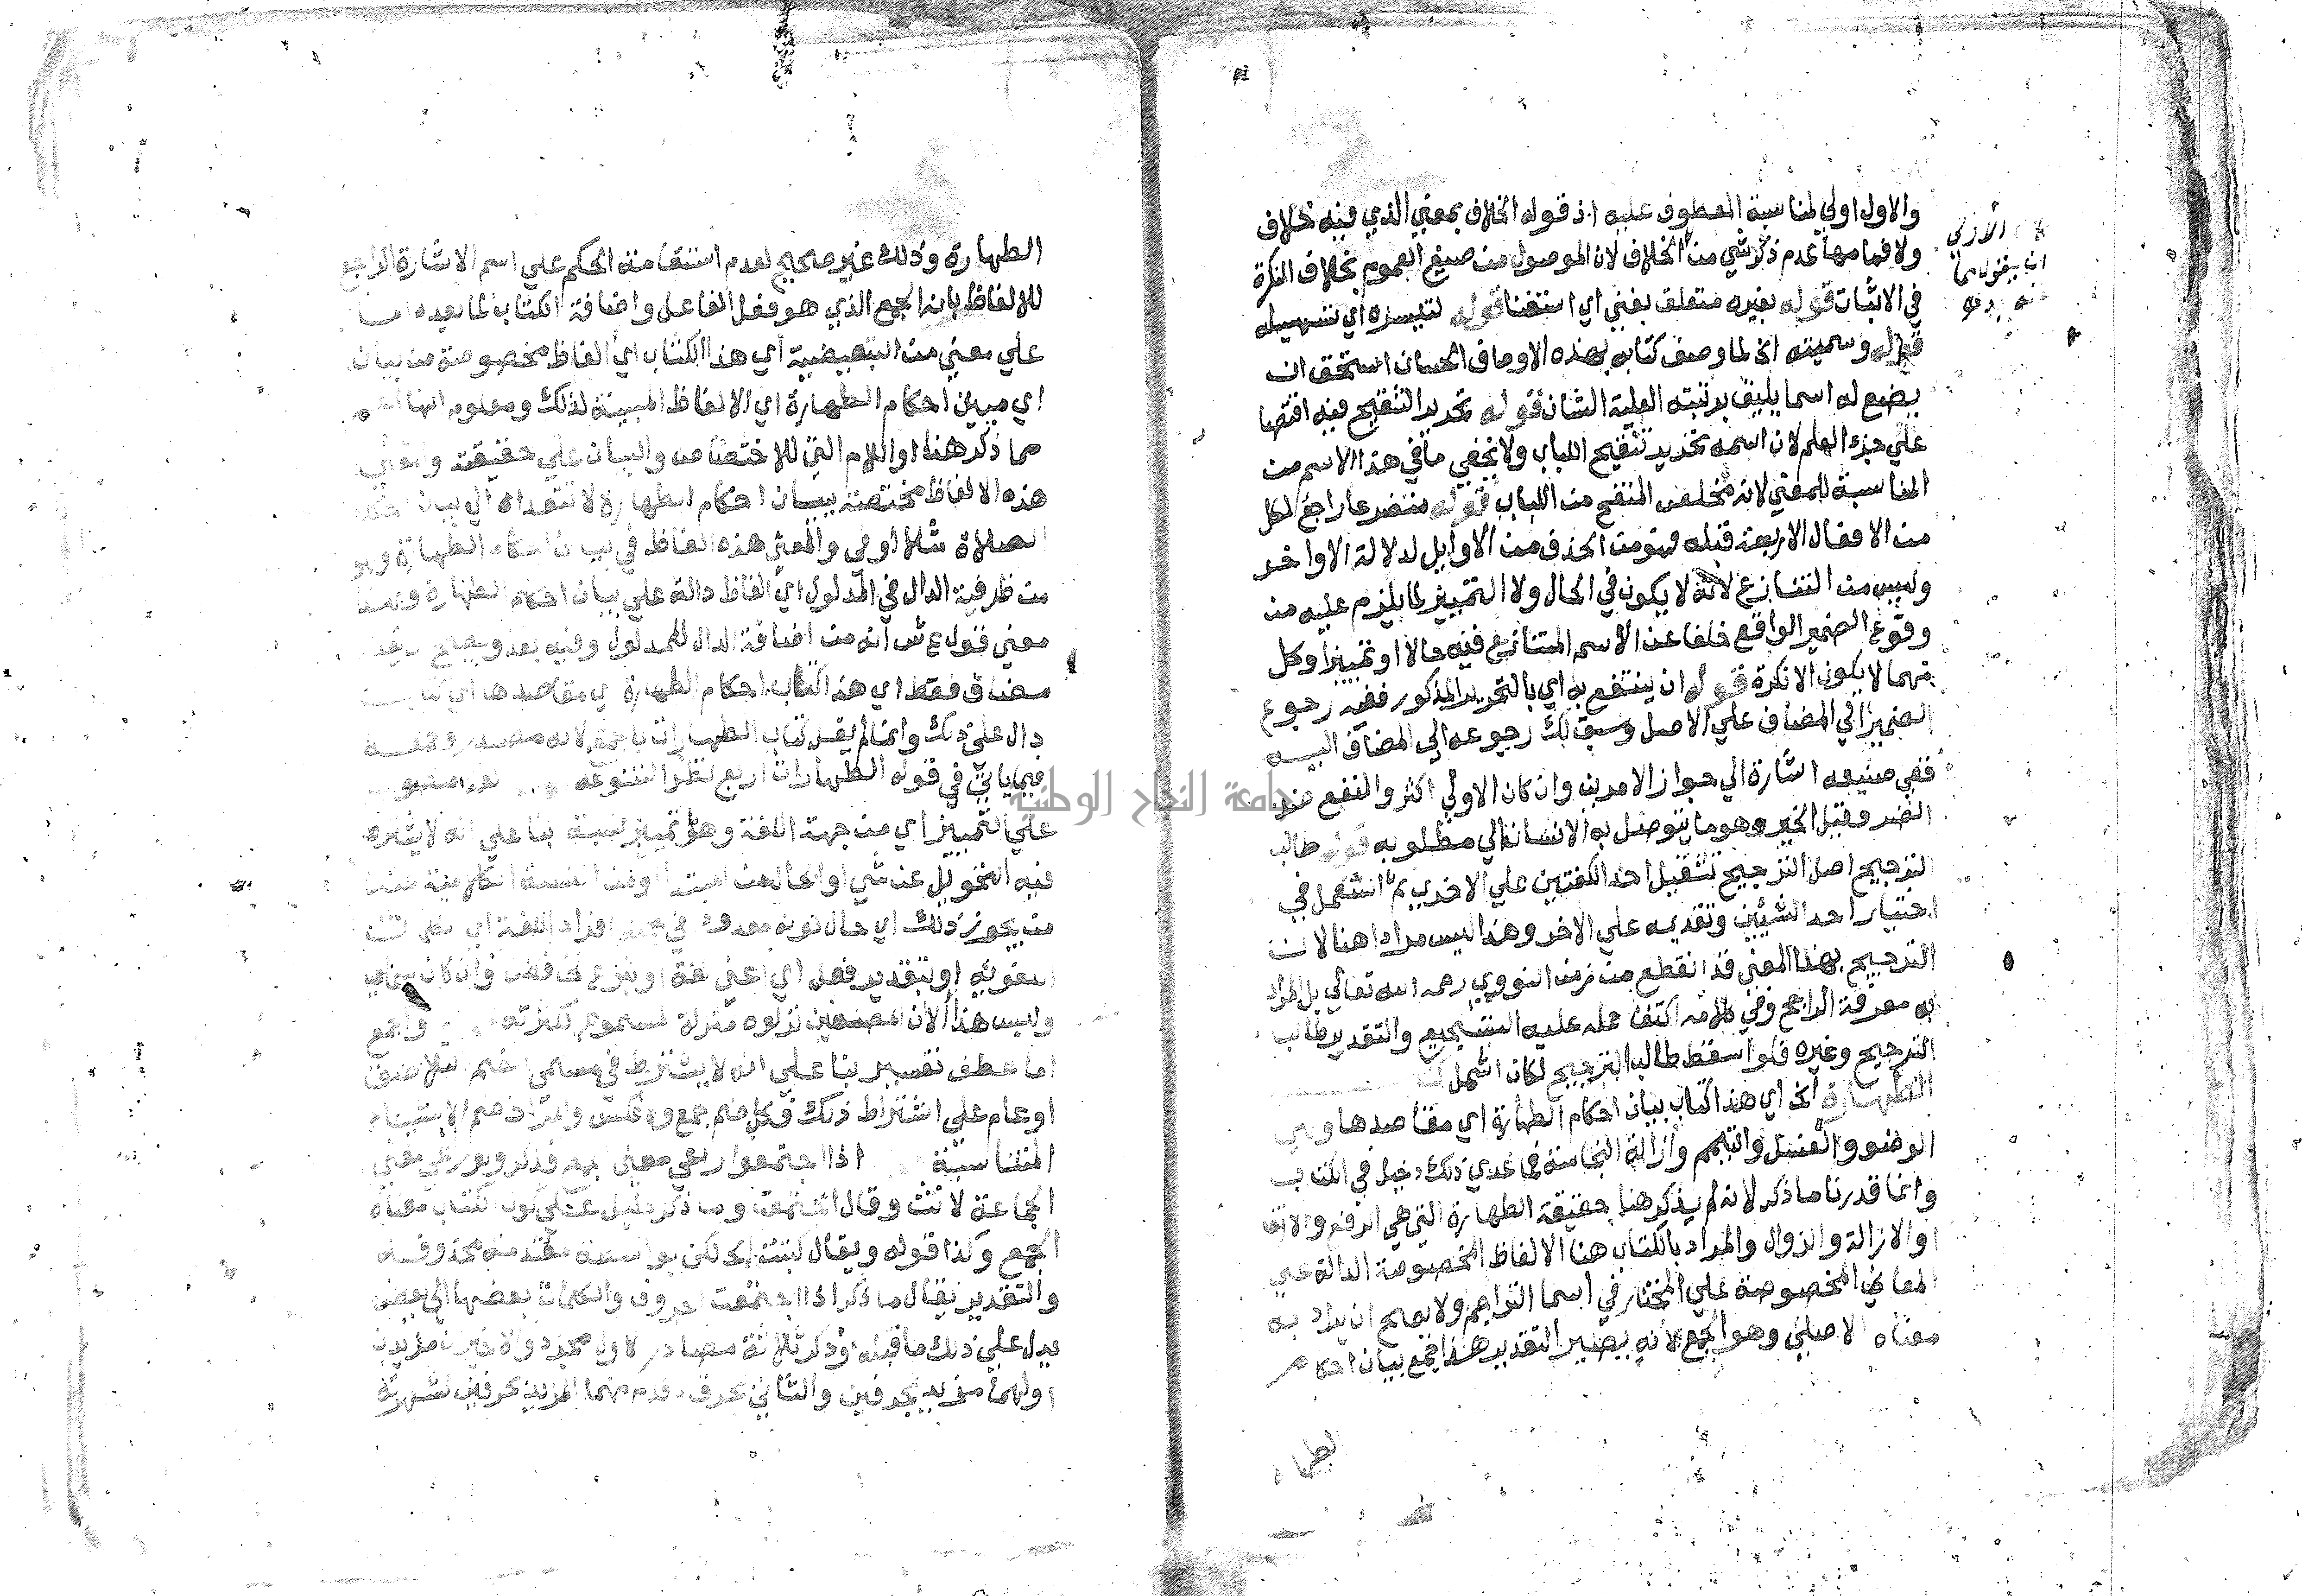 والاول اولي لمناسبة المعطوف عليه اذ قوله الخلاف بمعني الذي فيه خلاف
ولافهامها عدم ذكر شي من الخلاف لان الموصول من صيغ العموم بخلاف النكرة
في الاثبات قوله بغيره متعلق بغني اي استغنا قوله لتيسره اي تسهيله
قوله وسميته الخ لما وصف كتابه بهذه الاوصاف الحسان استحق ان
يضع له اسما يليق برتبته العلية الشان قوله تحرير التنقيح فيه اقتصا
علي جزء العلم لان اسمه تحرير تنقيح اللباب ولا يخفي ما في هذا الاسم من
المناسبة للمعني لانه مخلص المنقح من اللباب قوله متضرعا راجع لكل
من الافعال الاربعة قبله فهو من الحذف من الاوايل لدلالة الاواخر
وليس من التنازع لانه لا يكون في الحال ولا التمييز لما يلزم عليه من
وقوع الضمير الواقع خلفا عن الاسم المتنازع فيه حالا او تمييزا وكل
منهما لا يكون الا نكرة قوله ان ينتفع به اي بالتحرير المذكور ففيه رجوع
الضمير الي المضاف علي الاصل وسبق لك رجوعه الي المضاف اليه
ففي صنيعه اشارة الي جواز الامرين وان كان الاولي اكثر والنفع ضد
الضر وقيل الخير وهو ما يتوصل به الانسان الي مطلوبه قوله طالب
الترجيح اصل الترجيح تثقيل احد الكفتين علي الاخري ثم استعمل في
اختيار احد الشيئين وتقديمه علي الاخر وهذا ليس مرادا هنا لان
الترجيح بهذا المعني قد انقطع من زمن النووي رحمه الله تعالي بل المراد
به معرفة الراجح وفي كلامه اكتفا حمله عليه التشجيع والتقدير طالب
الترجيح وغيره فلو اسقط طالب الترجيح لكان اشمل
الطهارة الخ اي هذا كتاب بيان احكام الطهارة اي مقاصدها وهي
الوضو والغسل والتيمم وازالة النجاسة فما عدي ذلك دخيل في الكتاب
وانما قدرنا ما ذكر لانه لم يذكر هنا حقيقة الطهارة التي هي الرفع والازا
او الازالة والزوال والمراد بالكتاب هنا الالفاظ المخصوصة الدالة علي
المعاني المخصوصة علي المختار في اسما التراجم ولا يصح ان يراد به
معناه الاصلي وهو الجمع لانه يصير التقدير هذا جمع بيان احكام
الطهارة وذلك غير صحيح لعدم استقامة الحكم علي اسم الاشارة الراجع
للالفاظ بانه الجمع الذي هو فعل الفاعل واضافة الكتاب لما بعده
علي معني من التبعيضية اي هذا الكتاب اي الفاظ مخصوصة من بيان
اي مبين احكام الطهارة اي الالفاظ المبينة لذلك ومعلوم انها اعم
مما ذكر هنا او اللام التي للاختصاص والبيان علي حقيقته والمعني
هذه الالفاظ مختصة ببيان احكام الطهارة لا تتعداه الي بيان احكام
الصلاة مثلا او في والمعني هذه الفاظ في بيان احكام الطهارة وهو
من ظرفية الدال في المدلول اي الفاظ دالة علي بيان احكام الطهارة وهذا
معني قول ع ش انه من اضافة الدال للمدلول وفيه بعد ويصح
مضاف فقط اي هذا كتاب احكام الطهارة اي مقاصدها اي كتاب
دال علي ذلك وانما لم يقل كتاب الطهارات بالجمع لانه مصدر وجمعه
فيما ياتي في قوله الطهارات اربع نظرا لتنوعه
علي التمييز اي من جهة اللغة وهو تمييز نسبة بنا علي انه لا يشترط
فيه التحويل عن شي او الحال من المبتدا
من يجوز ذلك اي حال كونه معدودا في افراد اللغة اي
اللغوية او بتقدير فعل اي اعني لغة او بنزع الخافض وان كان سماعي
وليس هذا الا ان المصنفين نزلوه منزلة المسموع لكثرته والجمع
اما عطف تفسير بنا علي انه لا يشترط في مسمي الضم التلاصق
او عام علي اشتراط ذلك فكل ضم جمع ولا عكس والمراد ضم الاشياء
المتناسبة اذا اجتمعوا
الجماعة لانث وقال اجتمعت وما ذكر دليل علي كون الكتاب معناه
الجمع وكذا قوله ويقال كتبت الخ لكن بواسطة مقدمة محذوفة
والتقدير يقال ما ذكر اذا اجتمعت الحروف والكلمات بعضها الي بعض
يدل علي ذلك ما قبله وذكر ثلاثة مصادر الاول مجرد والاخيرين مزيدين
اولهما مزيد بحرفين والثاني بحرف وقدم منهما المزيد بحرفين لشهرته
جامعة النجاح الوطنية